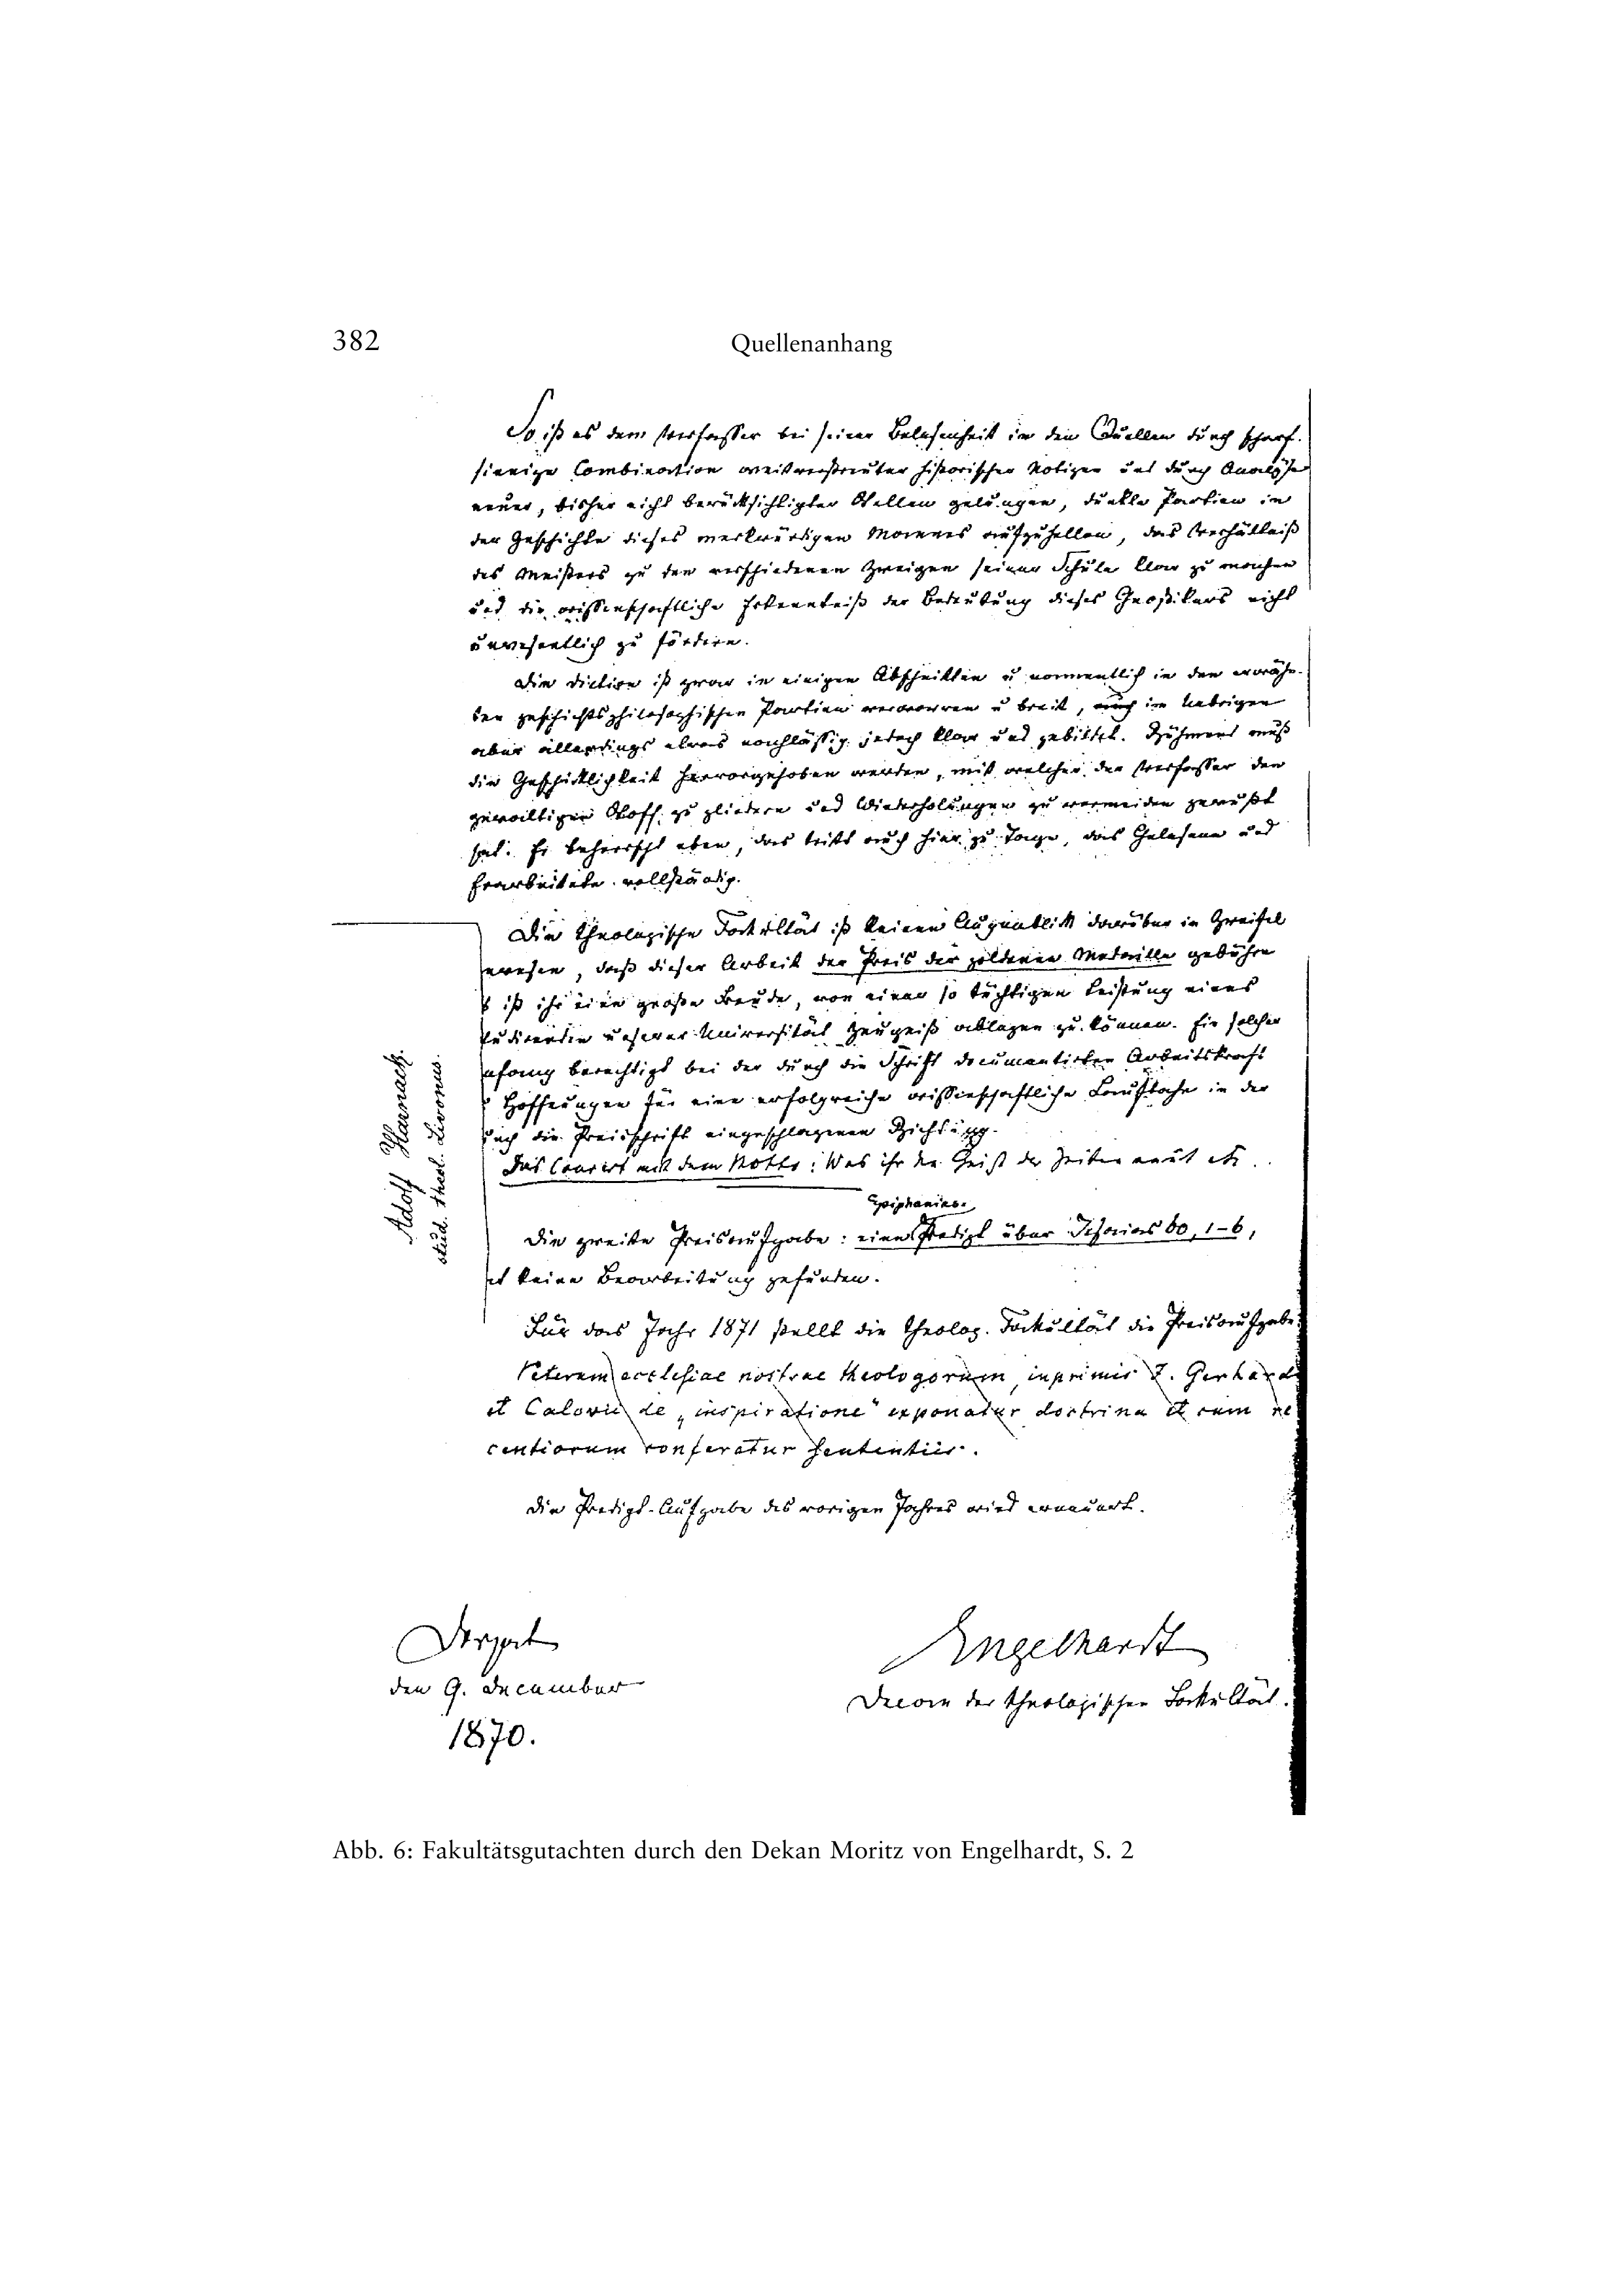 382
Quellenanhang
So ist es dem Verfasser bei seiner Belesenheit in den Quellen durch scharf-
sinnige Combination weitverstreuter historischer Notizen und durch Analyse
neuer, bisher nicht berücksichtigter Stellen gelungen, dunkle Partien in
der Geschichte dieses merkwürdigen Mannes aufzuhellen, das Verhältniß
des Meisters zu den verschiedenen Zweigen seiner Schule klar zu machen
und die wissenschaftliche Erkenntniß der Bedeutung dieses Gnostikers nicht
unwesentlich zu fördern.
Die Diction ist zwar in einigen Abschnitten u namentlich in den erwähn-
ten geschichtsphilosophischen Partien verworren u breit, auch im Uebrigen
aber allerdings etwas nachlässig jedoch klar und gebildet. Rühmend muß
die Geschicklichkeit hervorgehoben werden, mit welcher der Verfasser den
gewaltigen Stoff zu gliedern und Wiederholungen zu vermeiden gewußt
hat. Er beherrscht eben, das tritt auch hier zu Tage, das Gelesene und
Erarbeitete vollständig.
Die theologische Facultät ist keinen Augenblick darüber in Zweifel
wesen, daß dieser Arbeit der Preis der goldenen Medaille gebühre
s ist ihr eine große Freude, von einer so tüchtigen Leistung eines
tudirenden unserer Universität Zeugniß ablegen zu können. Ein solcher
nfang berechtigt bei der durch die Schrift documentirten Arbeitskraft
Hoffnungen für eine erfolgreiche wissenschaftliche Laufbahn in der
urch die Preisschrift eingeschlagenen Richtung.
Das Couvert mit dem Motto: Was ihr den Geist der Zeiten nennt etc.
Adolf Harnack.
stud. theol. Livonus.
Epiphanias-
Die zweite Preisaufgabe: eine Predigt über Jesaias 60, 1–6,
at keine Bearbeitung gefunden.
Für das Jahr 1871 stellt die theolog. Facultät die Preisaufgabe:
Veterum ecclesiae nostrae theologorum, inprimis J. Gerhardi
et Calovii de „inspiratione" exponatur doctrina et cum re
centiorum conferatur sententiis.
Die Predigt-Aufgabe des vorigen Jahres wird erneuert.
Dorpat
den 9. December
1870.
Engelhardt
Decan der theologischen Facultät.
Abb. 6: Fakultätsgutachten durch den Dekan Moritz von Engelhardt, S. 2